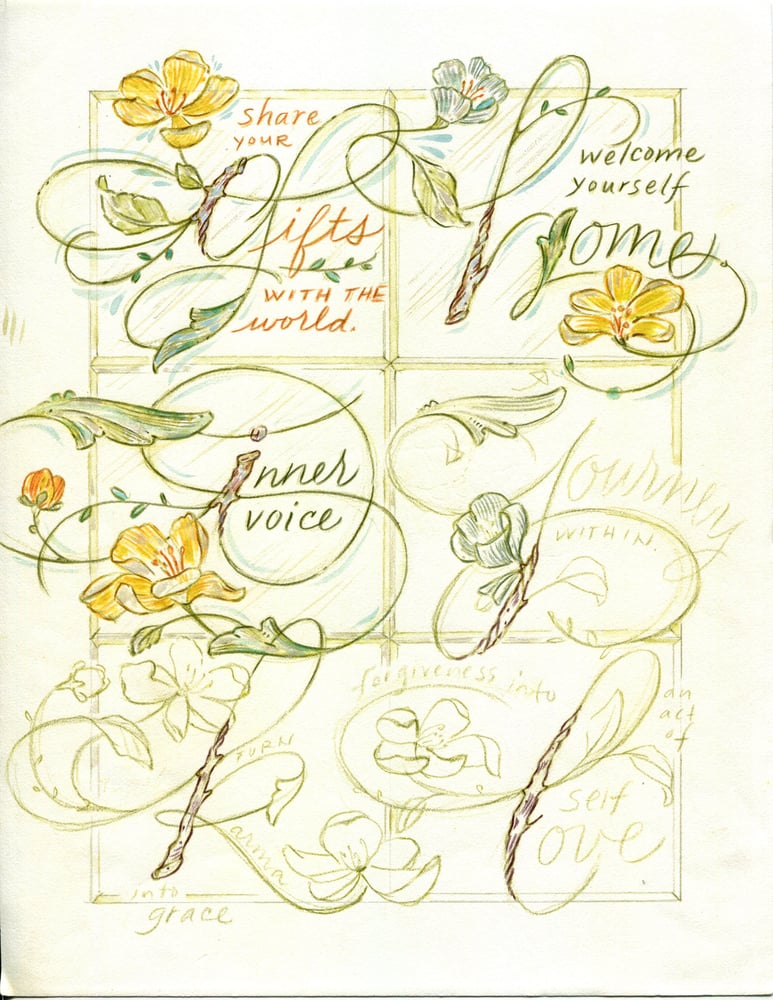 share
YOUR
gifts
WITH THE
world.
welcome
yourself
home
Inner
voice
Journey
WITHIN.
TURN
Karma
into
grace
forgiveness into
an
act
of
self
love